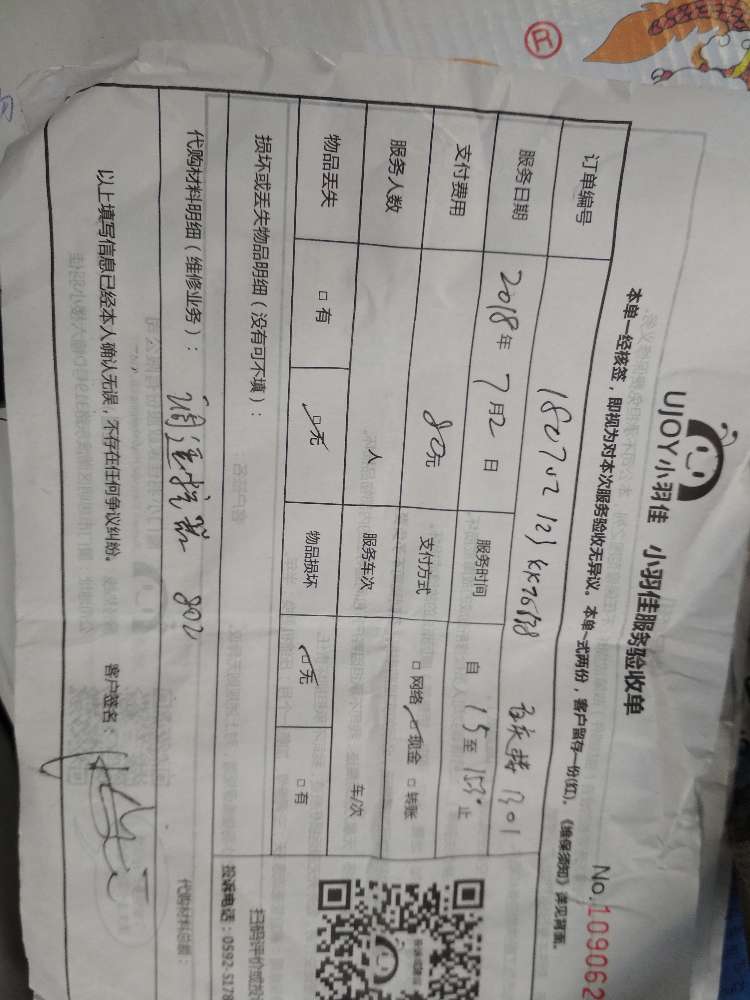 UJOY小羽佳 小羽佳服务验收单
No.109062
本单一经核签，即视为对本次服务验收无异议。本单一式两份，客户留存一份(红)。《维保须知》详见背面。
订单编号
服务日期 2018年7月2日 服务时间 自15至1530止
支付费用 80元 支付方式 □网络 ☑现金 □转账
服务人数 人 服务车次 车/次
物品丢失 □有 ☑无 物品损坏 ☑无 □有
损坏或丢失物品明细（没有可不填）：
扫码评价或投
投诉电话：0592-5178
代购材料明细（维修业务）：
代购材料总额：
以上填写信息已经本人确认无误，不存在任何争议纠纷。 客户签名：